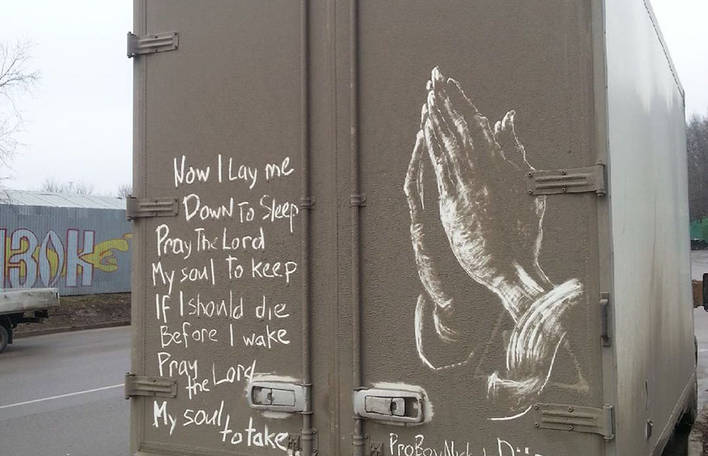 Now I Lay me
Down To Sleep
Pray The Lord
My soul To keep
If I should die
Before I wake
Pray
the Lord
My soul
to take
ProBoyNick